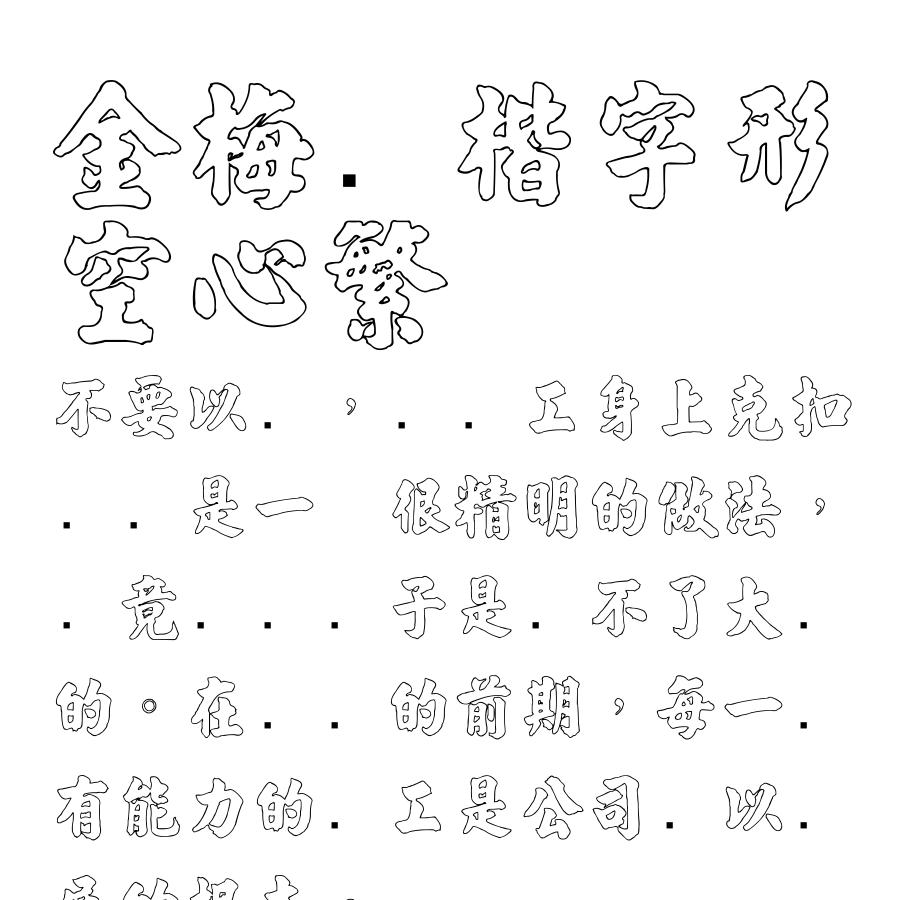 金梅. 楷字形
空心繁
不要以.，..工身上克扣
..是一 很精明的做法，
.竟... 子是.不了大.
的。在..的前期，每一.
有能力的.工是公司.以.